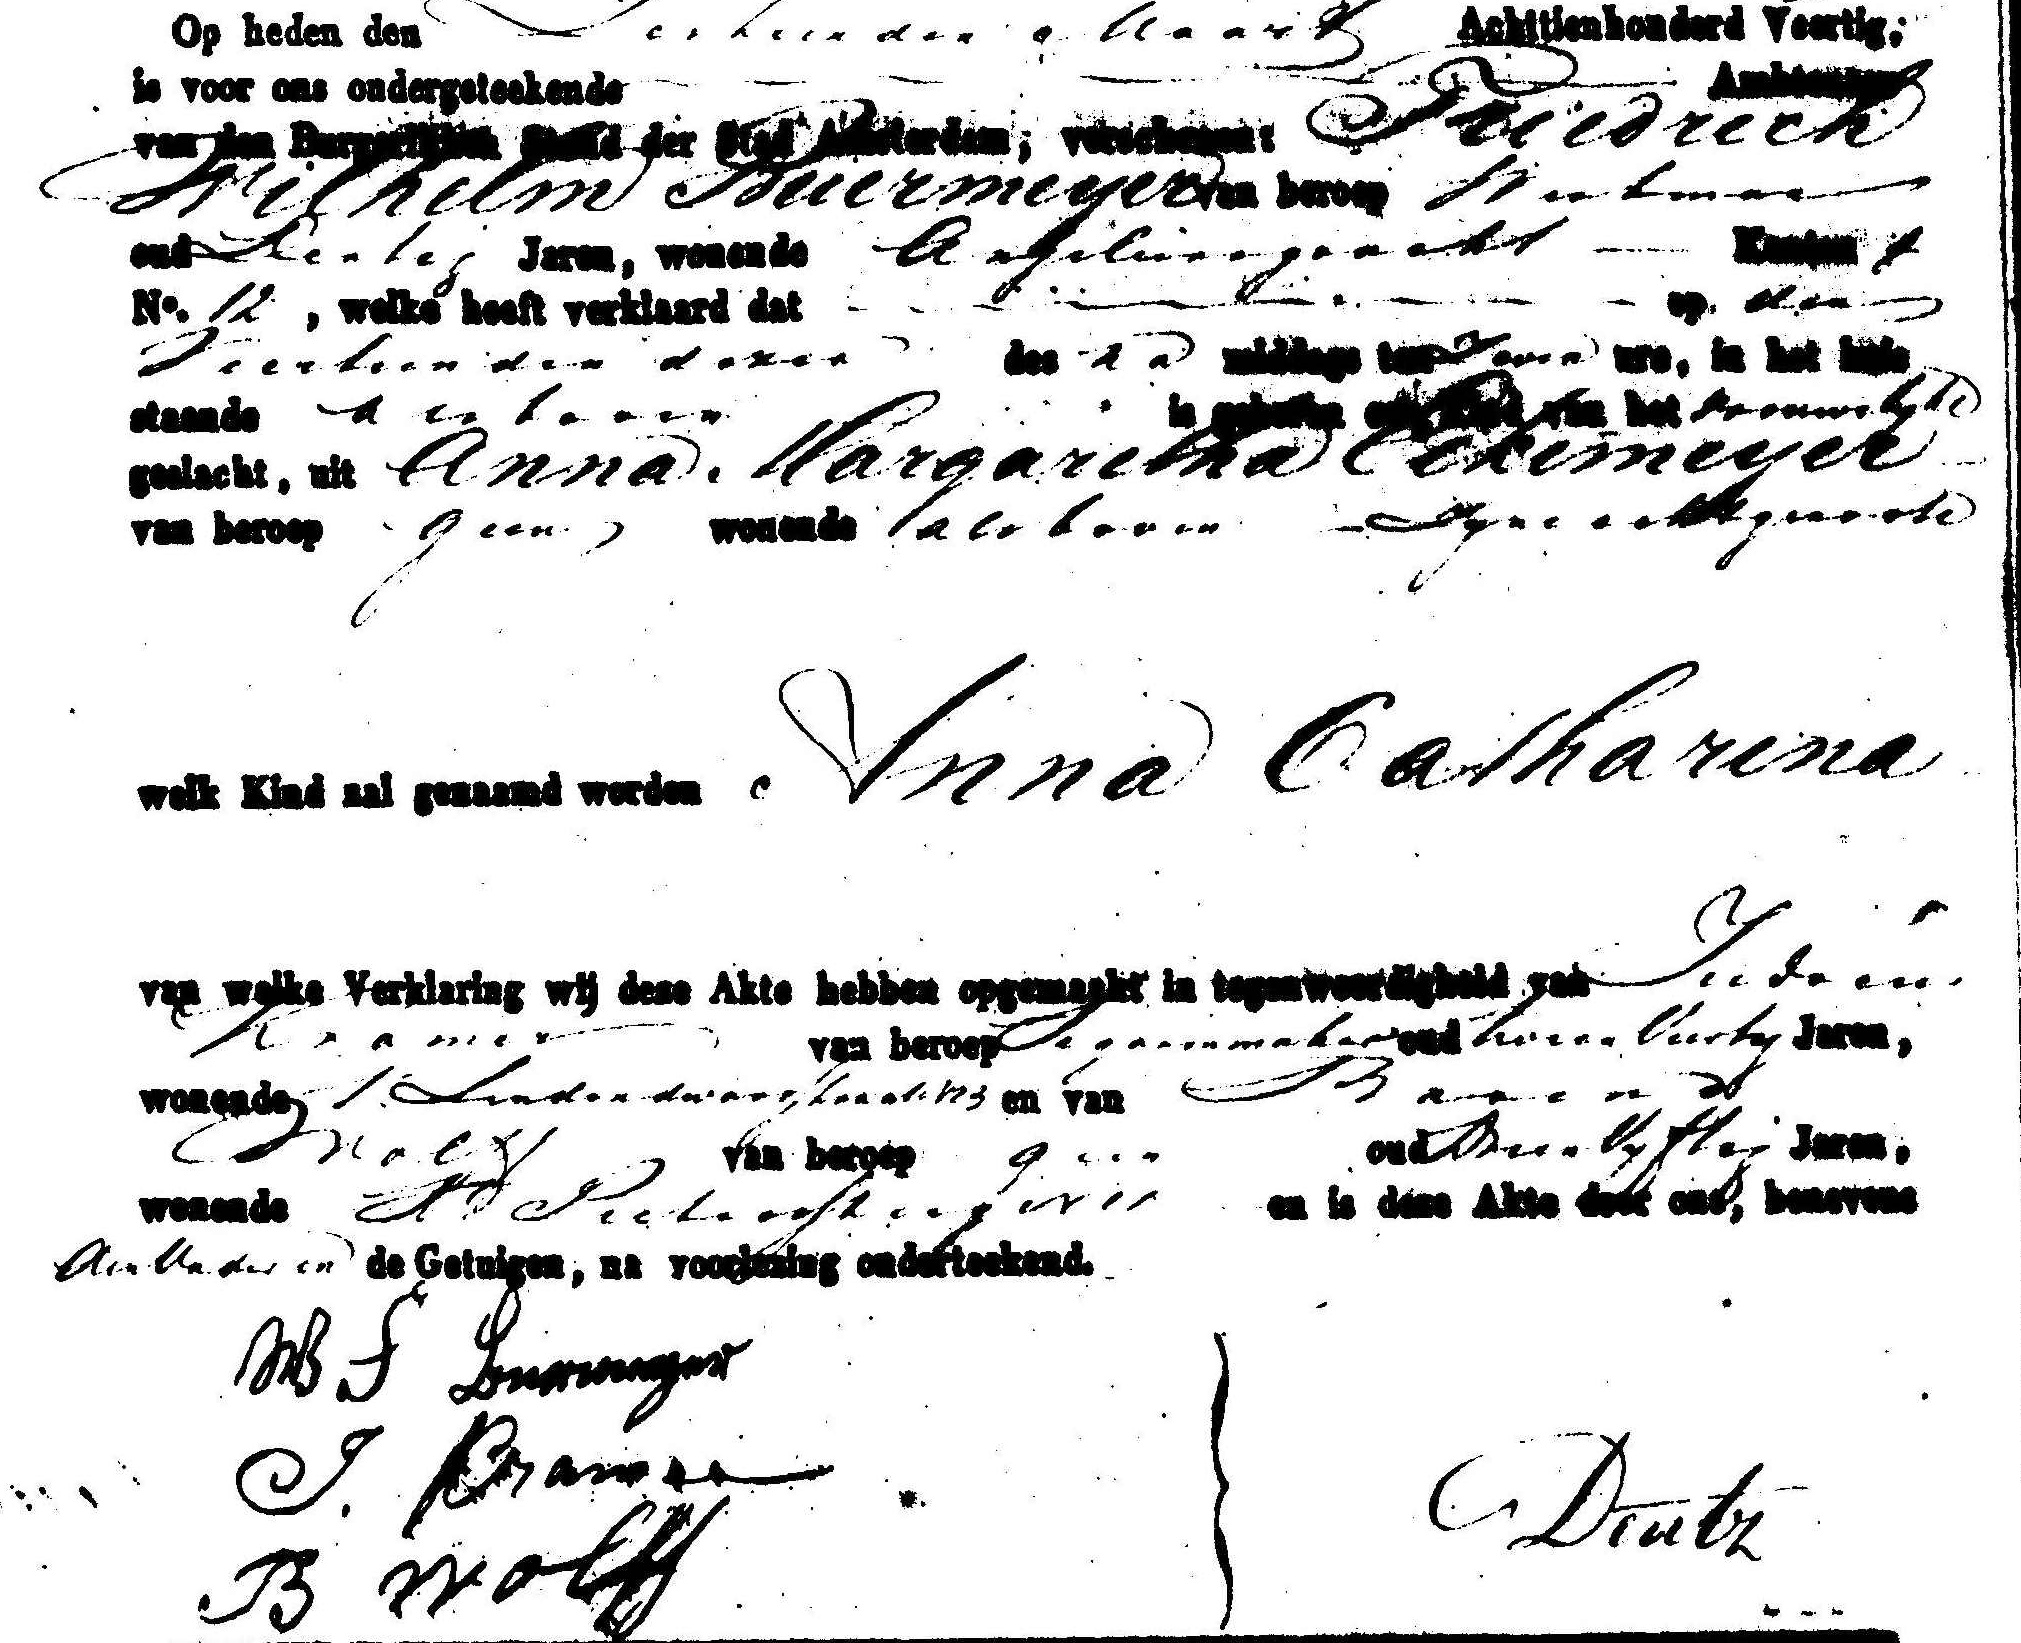 Op heden den Maart Achttienhonderd Veertig;
is voor ons ondergeteekende Ambtenaar
van den Burgerlijken Stand der Stad Amsterdam; verschenen: Friedrich
Wilhelm Buermeyer van beroep Werkman
oud Dertig Jaren, wonende Angeliersgracht Kanton 4
No. 12, welke heeft verklaard dat op den
Veertienden dezer des na middags ten ure, in het huis
staande als boven is geboren een Kind van het vrouwelyke
geslacht, uit Anna Margaretha
van beroep geen wonende als boven Zyne echtgenoote
welk Kind zal genaamd worden Anna Catharina
van welke Verklaring wij deze Akte hebben opgemaakt in tegenwoordigheid van
Kramer van beroep Segarenmaker oud Jaren,
wonende Lindendwarsstraat en van Barend
Wolff van beroep geen oud Jaren,
wonende en is deze Akte door ons, benevens
den Vader en de Getuigen, na voorlezing onderteekend.
W F Buermeyer
J. Kramer
B Wolff
Deutz